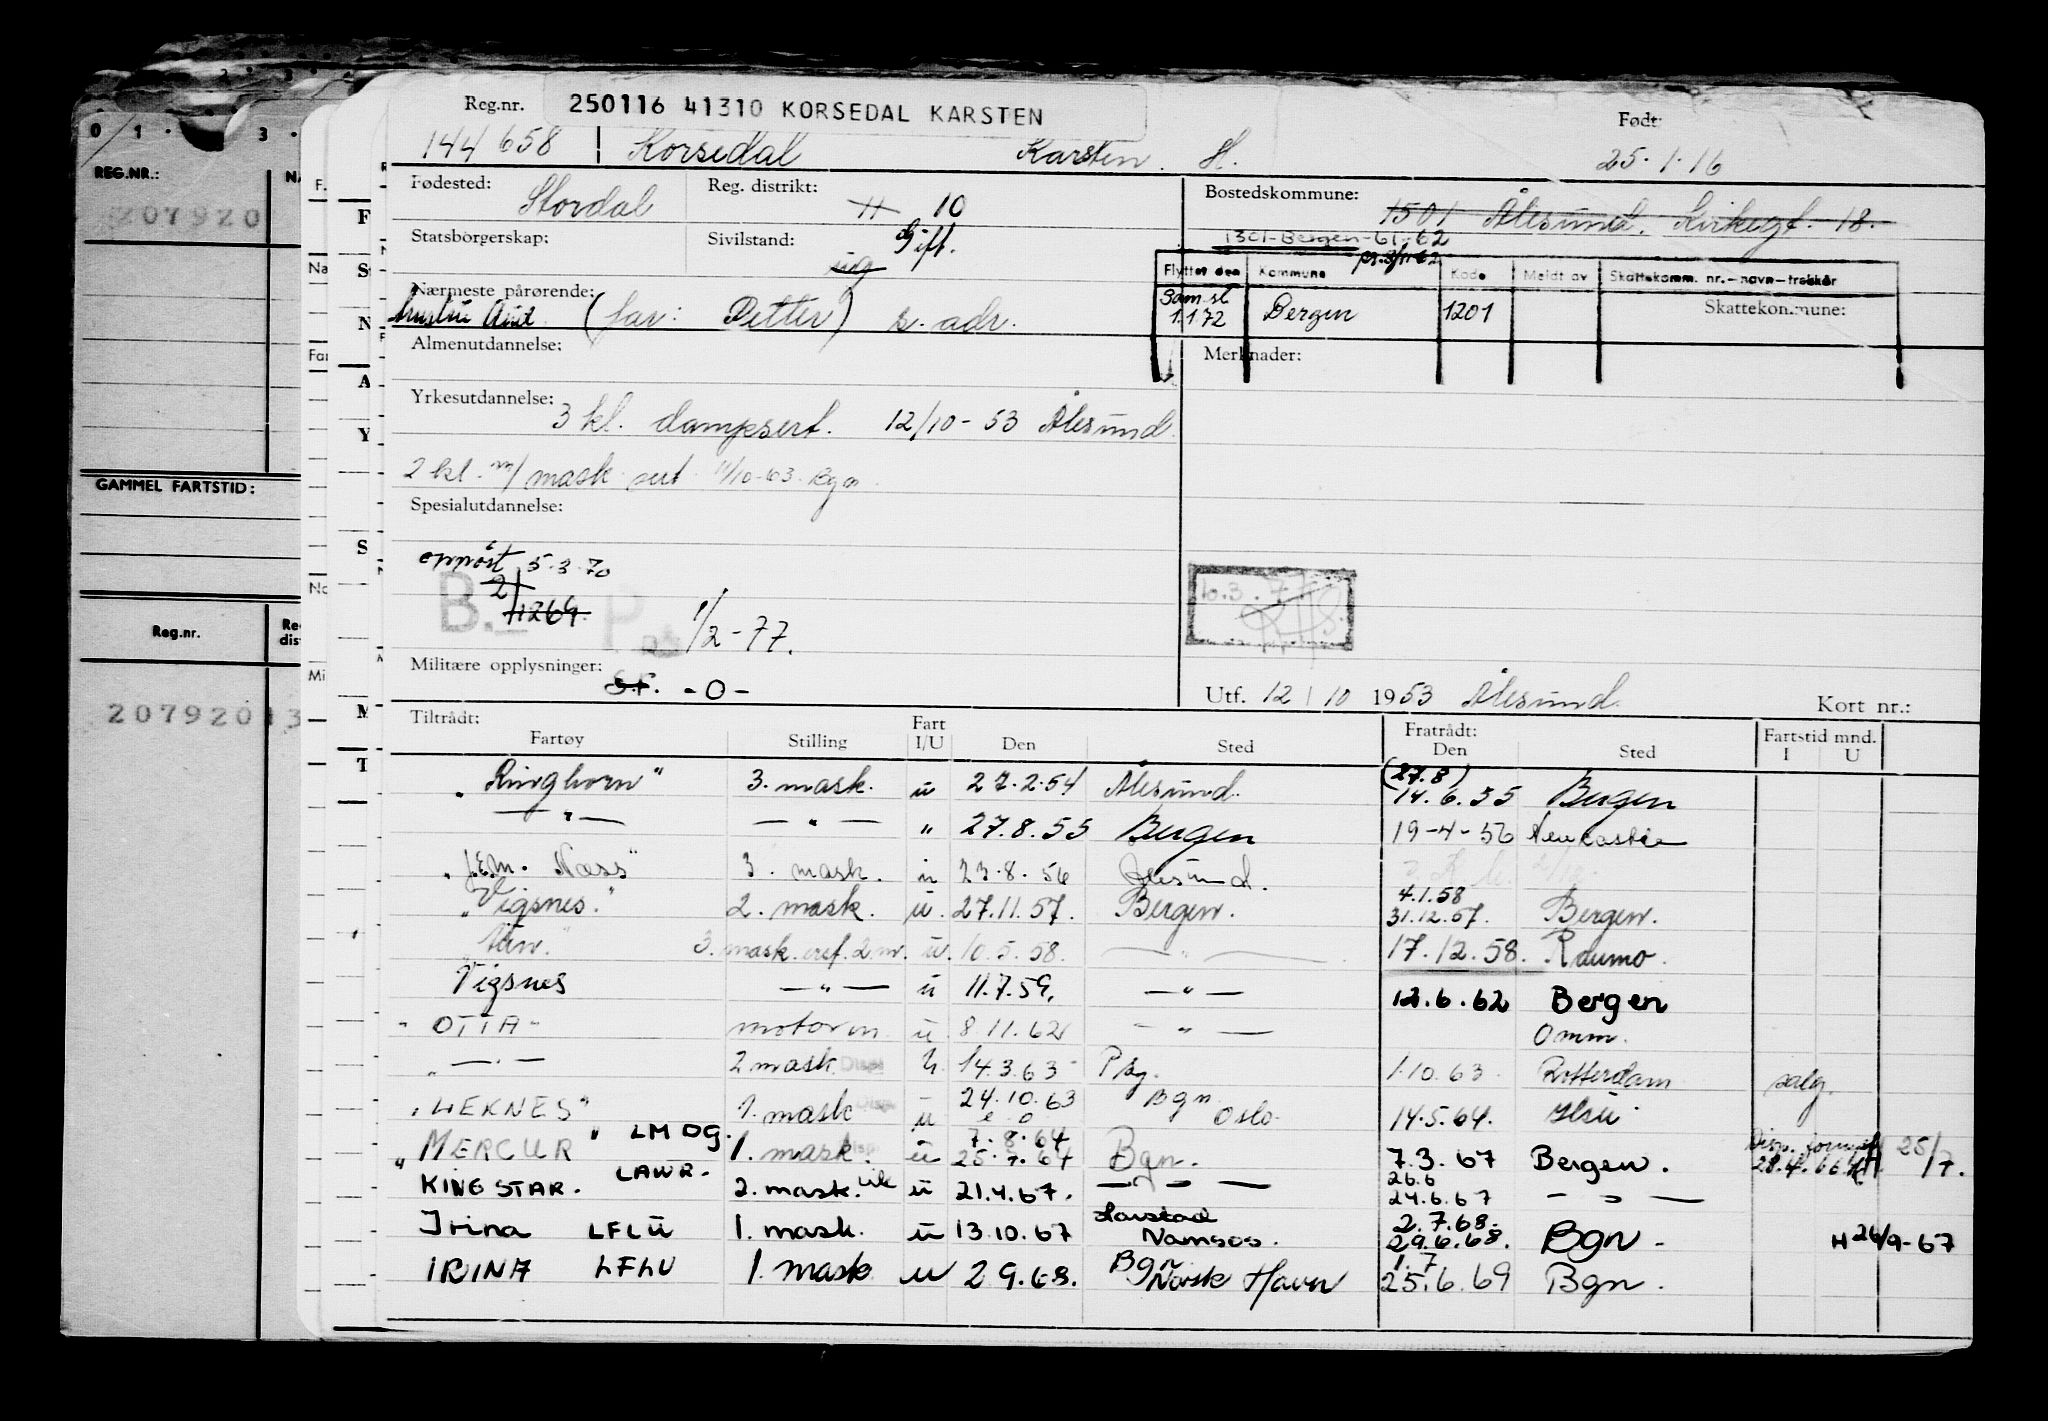 0 1 . 3 .
REG.NR.:
207920
GAMMEL FARTSTID:
Reg.nr.
207920
Reg.nr. 250116 41310 KORSEDAL KARSTEN Født:
144658 Korsedal Karsten H. 25.1.16
Fødested: Stordal Reg. distrikt: 11 10 Bostedskommune: 1501 Ålesund. Kirkegt. 18.
1301-Bergen-61-62
Statsborgerskap: Sivilstand: ug Gift.
Flyttet den Kommune Kode Meldt av Skattekomm. nr.-navn-trekkår
Nærmeste pårørende: (far: Petter) s. adr.
Samst 1.1.72 Bergen 1201 Skattekommune:
Almenutdannelse: Merknader:
Yrkesutdannelse: 3 kl. dampsert. 12/10-53 Ålesund
2 kl. m/mask. sert. 11/10-63. Bgn
Spesialutdannelse:
oppnöst 5.3.70
2 1264.
B. P 1/2-77.
10.3.77
Militære opplysninger: S.F. -0-
Utf. 12/10 1953 Ålesund. Kort nr.:
Tiltrådt: Fratrådt:
Fartøy Stilling Fart I/U Den Sted Den Sted Fartstid mnd. I U
"Ringhorn" 3. mask. u 27.2.54 Ålesund. (27.8) 14.6.55 Bergen
— " — — " — " 27.8.55 Bergen 19-4-56 Newcastle
"J.E.M. Næss" 3. mask. u 23.8.56 Ålesund.
"Vigsnes." 2. mask. u. 27.11.57. Bergen. 4.1.58 31.12.57. Bergen.
3. mask. 2. m. u. 10.5.58. — " — 17.12.58. Raumo.
Vigsnes — " — u 11.7.59. — " — 12.6.62 Bergen
"OTTA" motorm. u. 8.11.62 — " — Omm.
— " — 2 mask. Disp. u. 14.3.63 1.10.63. Rotterdam salg.
"LEKNES" 1. mask Disp. u 24.10.63 Bgn Oslo. 14.5.64.
"MERCUR" LMDG. 1. mask. Disp. u 7.8.64 25.7.64 Bgn. 7.3.67 Bergen. Disp. 28.4.66 25/7.
KING STAR. LAWR. 2. mask. vik u 21.4.67. — " — 26.6 24.6.67 — " —
Irina LFLU 1. mask. u 13.10.67 Harstad Namsos. 2.7.68. 29.6.68. Bgn. H 26/9-67
IRINA LFLU 1. mask u 2 9.68. Bgn Norsk Havn 1.7 25.6.69 Bgn.